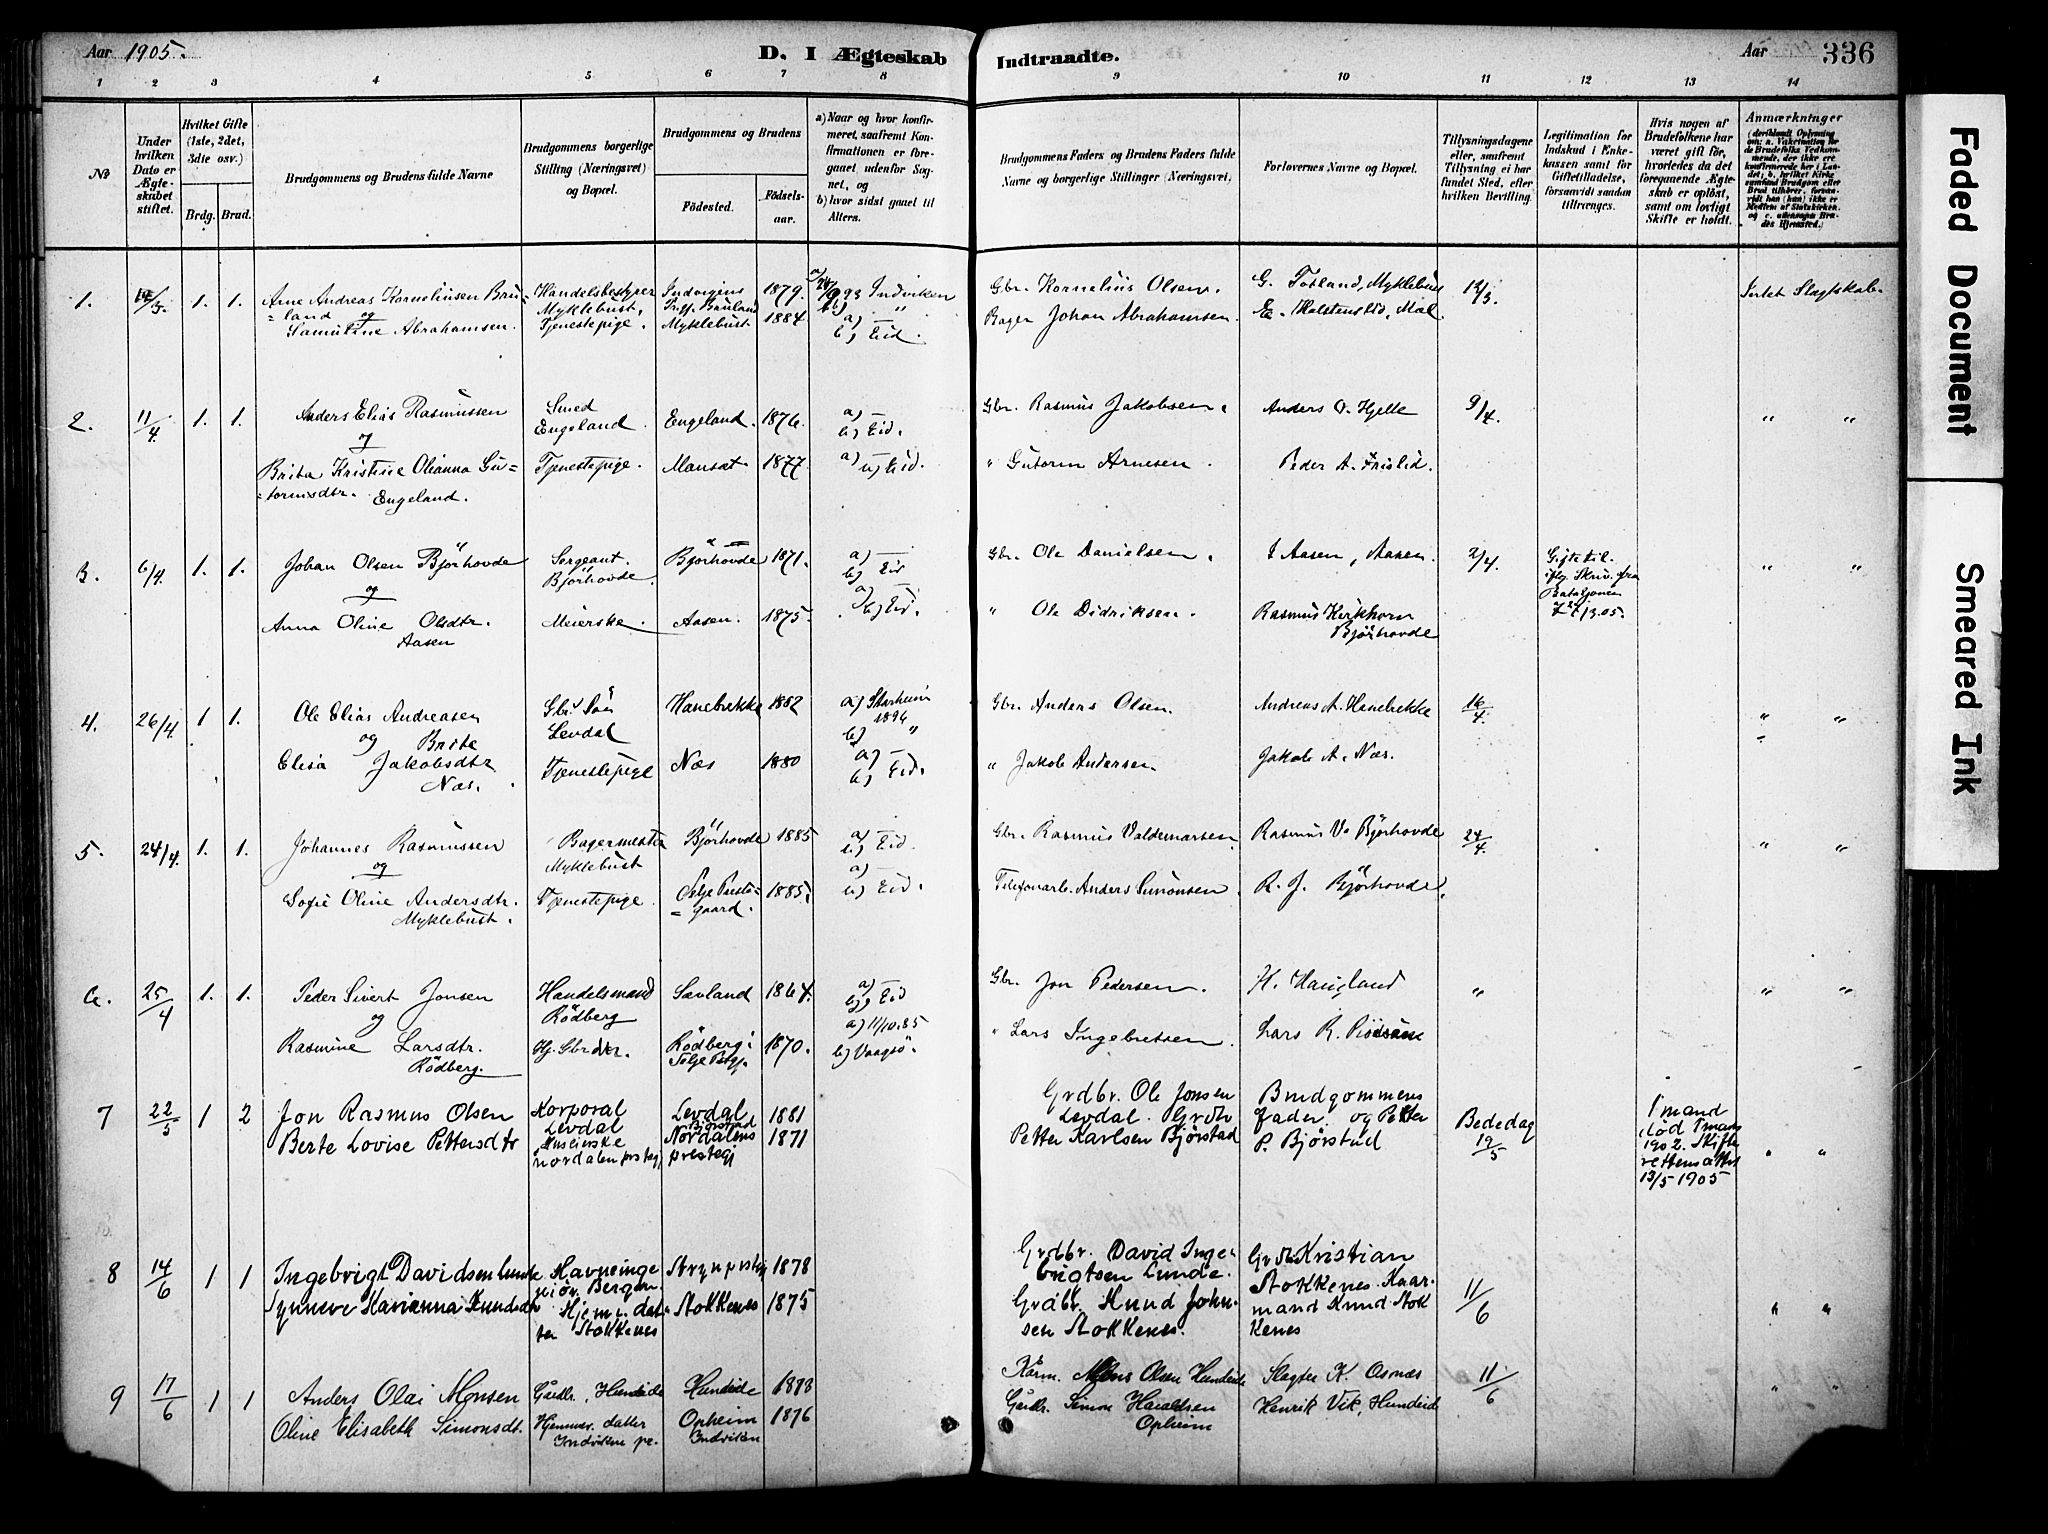 Aar 1905.
D. I Ægteskab Indtraadte.
Aar 336
1 2 3 4 5 6 7 8 9 10 11 12 13 14
No
Under hvilken Dato er Ægteskabet stiftet.
Hvilket Gifte (1ste, 2det, 3die osv.)
Brdg. Brud.
Brudgommens og Brudens fulde Navne
Brudgommens borgerlige Stilling (Næringsvei) og Bopæl.
Brudgommens og Brudens
Fødested. Fødselsaar.
a) Naar og hvor konfirmeret, saafremt Konfirmationen er foregaaet udenfor Sognet, og
b) hvor sidst gaaet til Alters.
Brudgommens Faders og Brudens Faders fulde Navne og borgerlige Stillinger (Næringsvei)
Forlovernes Navne og Bopæl.
Tillysningsdagene eller, saafremt Tillysning ei har fundet Sted, efter hvilken Bevilling.
Legitimation for Indskud i Enkekassen samt for Giftetilladelse, forsaavidt saadan tiltrænges.
Hvis nogen af Brudefolkene har været gift før, hvorledes da det foregaaende Ægteskab er opløst, samt om lovligt Skifte er holdt.
Anmærkninger
1. 1. 1. Arne Andreas Korneliusen Bru=
=land og
Samuline Abrahamsen.
Handelsbestyrer
Myklebust.
Tjenestepige.
Myklebust
1879.
1884
Indviken
b) "
a) —
b) Eid.
Gbr. Kornelius Olsen.
Bager Johan Abrahamsen.
G. Totland, Myklebust
12/3.
Intet Slagtskab.
2. 11/4. 1. 1. Anders Elias Rasmussen
og
Brita Kristine Olianna Gu=
=tormsdtr. Engeland.
Smed
Engeland.
Tjenestepige.
Engeland. 1876.
1877.
a) —
b) Eid.
a) — b) Eid.
Gbr. Rasmus Jakobsen.
" Gutorm Arnesen.
Anders O. Hjelle
Peder A. Frislid.
9/4.
" "
3. 6/4. 1. 1. Johan Olsen Björhovde
og
Anna Oline Olsdtr.
Aasen
Sergeant.
Björhovde.
Meierske.
Björhovde 1871.
Aasen. 1875.
a) —
b) Eid
a) —
b) Eid.
Gbr. Ole Danielsen.
" Ole Didriksen.
Aasen, Aasen.
Rasmus Kirkhorn
Björhovde
2/4.
Giftetil.
iflg. Skriv. fra
Bataljonen
" "
4. 26/4. 1 1. Ole Elias Andreasen
og Brite
Elisa Jakobsdtr
Næs.
Levdal
Tjenestepige
Hanebrekke 1882
Næs 1880
a) Starheim
1896
b) "
a) —
b) Eid.
Gbr. Anders Olsen.
" Jakob Andersen
Andreas A. Hanebrekke
Jakob A. Næs.
16/4.
" "
5. 24/4. 1. 1. Johannes Rasmussen
og
Sofie Oline Andersdtr.
Myklebust.
Bagermester
Myklebust
Tjenestepige.
Björhovde 1885
Selje Prestegaard. 1885.
a) —
b) Eid.
a) —
b) Eid.
Gbr. Rasmus Valdemarsen
Telefonarb. Anders Simonsen.
Rasmus V. Björhovde
R. J. Björhovde.
24/4.
" "
6. 25/4 1. 1. Peder Sivert Jonsen
og
Rasmine Larsdtr.
Rödberg.
Handelsmand
Rödberg
Hj. Gbrdtr.
Savland 1864.
Rödberg i
Selje Prstgj. 1870.
a) —
b) Eid
a) 11/10.85
b) Vaagsö.
Gbr. Jon Pedersen.
" Lars Ingebretsen.
H. Haugland
Lars R.
"
" "
7 22/5 1 2 Jon Rasmus Olsen
Berte Lovise Pettersdtr
Korporal
Levdal
Meierske
Nordalen prsteg.
Levdal 1881
Björstad
Nordalens
prestegj 1871
Grdbr. Ole Jonsen
Levdal. Grdbr
Petter Karlsen Bjørstad
Brudgommens
fader og Petter
P. Bjørstad
Bededag
19/5
1 mand
død 1 mars
1902. Skifte
rettens attest
13/5 1905
" "
8 14/6 1 1 Ingebrigt Davidsen Lunde
Synneve Karianna Knudsdtr
Havneinge
niör, Bergen
Hjem.dat=
ter Stokkenes
Stryn prsteg 1878
Stokkenes 1875
Grdbr. David Inge=
brigtsen Lunde.
Grdbr. Knud John=
sen Stokkenes.
Grdbr Kristian
Stokkenes. Kaar=
mand Knud Stok
kenes
11/6
" "
9 17/6 1 1 Anders Olai Monsen
Oline Elisabeth Simonsdt.
Gårdbr., Hundeide
Hjemmev. datter
Indviken pr.
Hundeide 1878
Opheim 1876
Indviken
Kårm. Mons Olsen Hundeide
Gårdbr. Simon Haraldsen
Opheim
Slagter K. Osnæs
Henrik Vik, Hundeid
11/6
" "
Faded Document
Smeared Ink